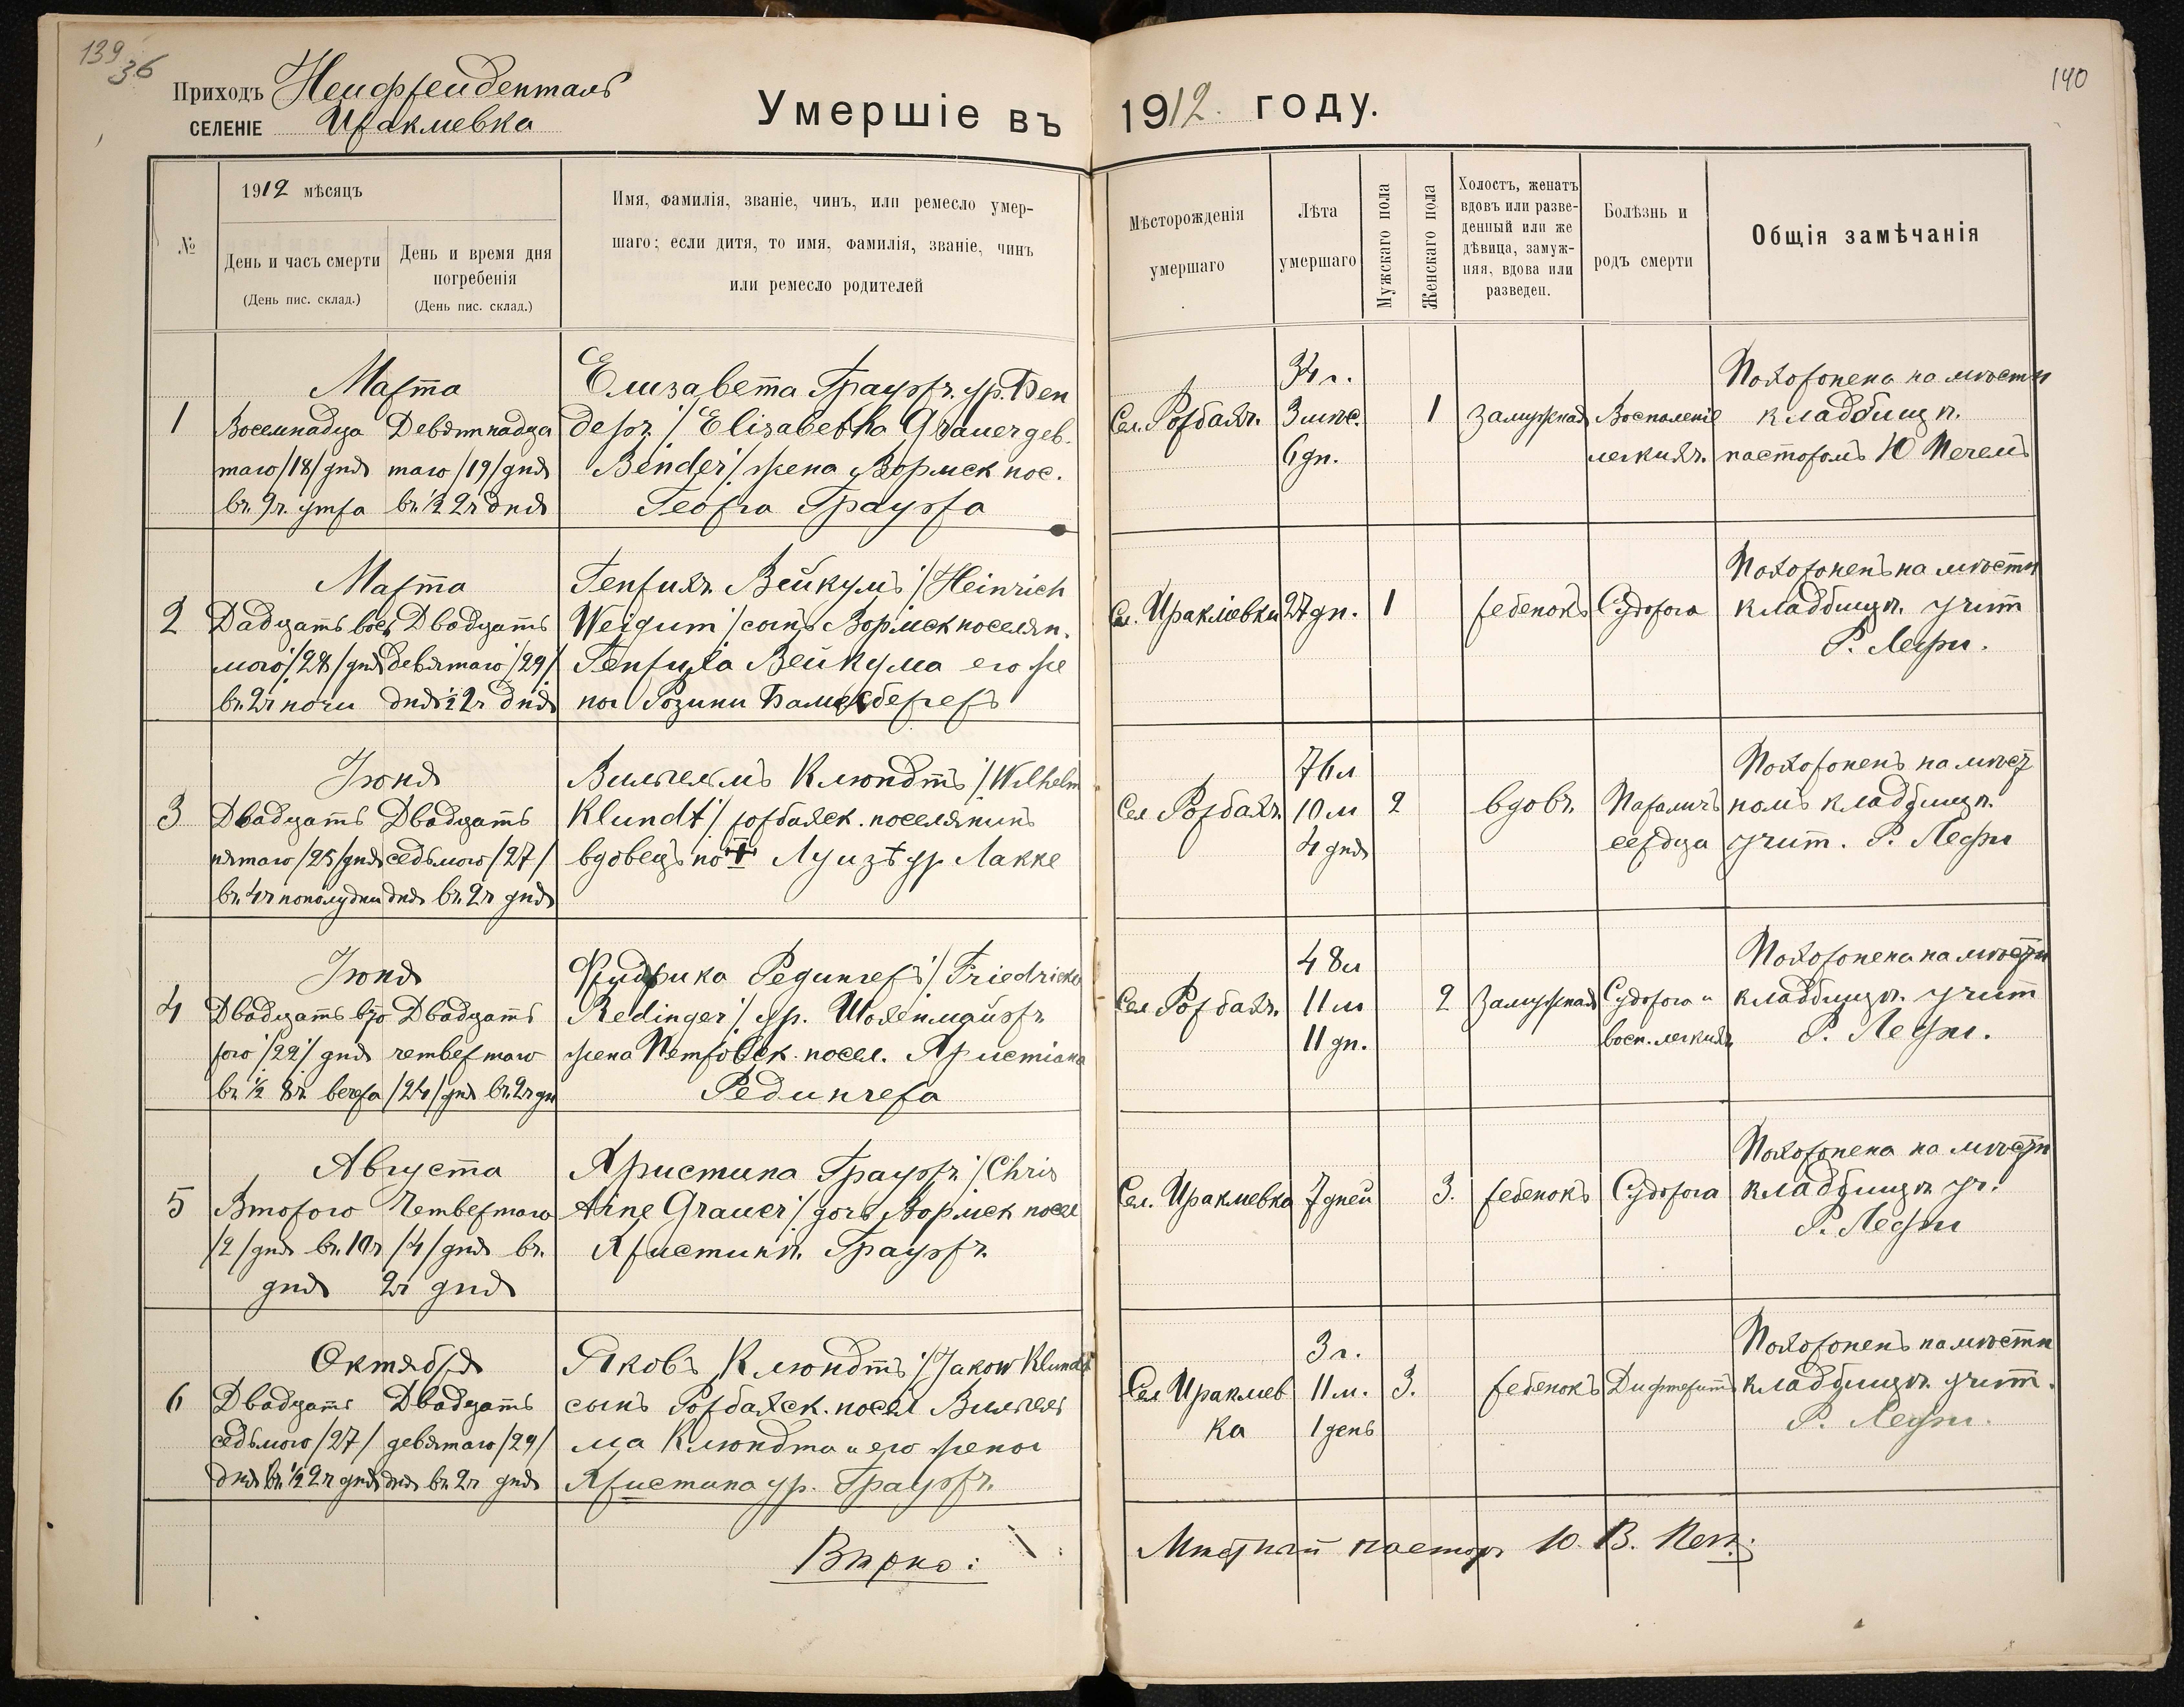 139
36
Приходъ Нейфрейденталь
СЕЛЕНІЕ Ираклиевка
Умершіе въ 1912. году.
140
№
1912 мѣсяцъ
День и часъ смерти
(День пис. склад.)
День и время дня
погребенія
(День пис. склад.)
Имя, фамилія, званіе, чинъ, или ремесло умер-
шаго; если дитя, то имя, фамилія, званіе, чинъ
или ремесло родителей
Мѣсторожденія
умершаго
Лѣта
умершаго
Мужскаго пола
Женскаго пола
Холостъ, женатъ
вдовъ или разве-
денный или же
дѣвица, замуж-
няя, вдова или
разведен.
Болѣзнь и
родъ смерти
Общія замѣчанія
1
Марта
Восемнадца
таго /18/ дня
въ 9ч. утра
Девятнадца
таго /19/ дня
въ ½ 2ч дня
Елизавета Грауэръ ур. Бен
деръ /Elisabetha Grauer geb.
Bender/ жена Вормск пос.
Георга Грауэра
Сел. Рорбахъ
34 г.
3 мѣс.
6 дн.
1
замужная
Воспаленіе
легкихъ.
Похоронена на мѣстн
кладбищѣ.
пасторомъ Ю Печемъ
2
Марта
Дадцать вось
мого /28/ дня
въ 2ч ночи
Двадцать
девятаго /29/
дня ½ 2ч дня
Генрихъ Вейкумъ /Heinrich
Weigum/ сынъ Вормск поселян.
Генриха Вейкума его же
ны Розины Бамесбергеръ
Сел. Ираклiевки
27 дн.
1
ребенокъ
Судорога
Похороненъ на мѣстн
кладбищѣ. учит
Р. Лери.
3
Іюня
Двадцать
пятаго /25/ дня
въ 4ч пополудни
Двадцать
седьмого /27/
дня въ 2ч дня
Вильгельмъ Клюндтъ /Wilhelm
Klundt/ рорбахск. поселянинъ
вдовецъ по † Луизѣ ур Лакке
Сел Рорбахъ
76 л
10 м
4 дня
2
вдовъ
Параличъ
сердца
Похороненъ на мѣст
номъ кладбищѣ.
учит. Р. Лери
4
Іюня
Двадцать вто
рого /22/ дня
въ ½ 8ч вечера
Двадцать
четвертаго
/24/ дня въ 2ч дн
Фридрика Редингеръ /Friedricke
Redinger/ ур. Шохенмайэръ
жена Петровск. посел. Христiана
Редингера
Сел Рорбахъ
48 л
11 м
11 дн.
2
замужная
Судорога и
восп. легкихъ
Похоронена на мѣстн
кладбищѣ. учит
Р. Лери.
5
Августа
Второго
/2/ дня въ 10ч
дня
Четвертаго
/4/ дня въ
2ч дня
Христина Грауэръ /Chris
tine Grauer/ дочь Вормск посел
Христинѣ Грауэръ.
Сел. Ираклиевка
7 дней
3.
ребенокъ
Судорога
Похоронена на мѣстн
кладбищѣ уч.
Р. Лери
6
Октября
Двадцать
седьмого /27/
дня въ ½ 2ч дня
Двадцать
девятаго /29/
дня въ 2ч дня
Яковъ Клюндтъ /Jakow Klundt
сынъ Рорбахск. посел Вильгель
ма Клюндта и его жены
Христина ур. Грауэръ.
Сел Ираклиев
ка
3 г.
11 м.
1 день
3.
ребенокъ
Дифтеритъ
Похороненъ на мѣстн
кладбищѣ. учит.
Р. Лери.
Вѣрно:
Мѣстный пасторъ Ю. В. Печъ.